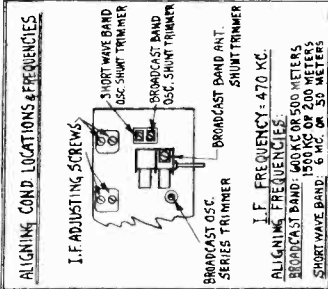 ALIGNING COND. LOCATIONS & FREQUENCIES
I.F. ADJUSTING SCREWS
SHORT WAVE BAND
OSC. SHUNT TRIMMER
BROADCAST BAND
OSC. SHUNT TRIMMER
BROADCAST BAND ANT.
SHUNT TRIMMER
BROADCAST OSC.
SERIES TRIMMER
I.F. FREQUENCY = 470 KC.
ALIGNING FREQUENCIES:
BROADCAST BAND: 600 KC OR 500 METERS
1500 KC OR 200 METERS
SHORT WAVE BAND: 6 MC. OR 50 METERS